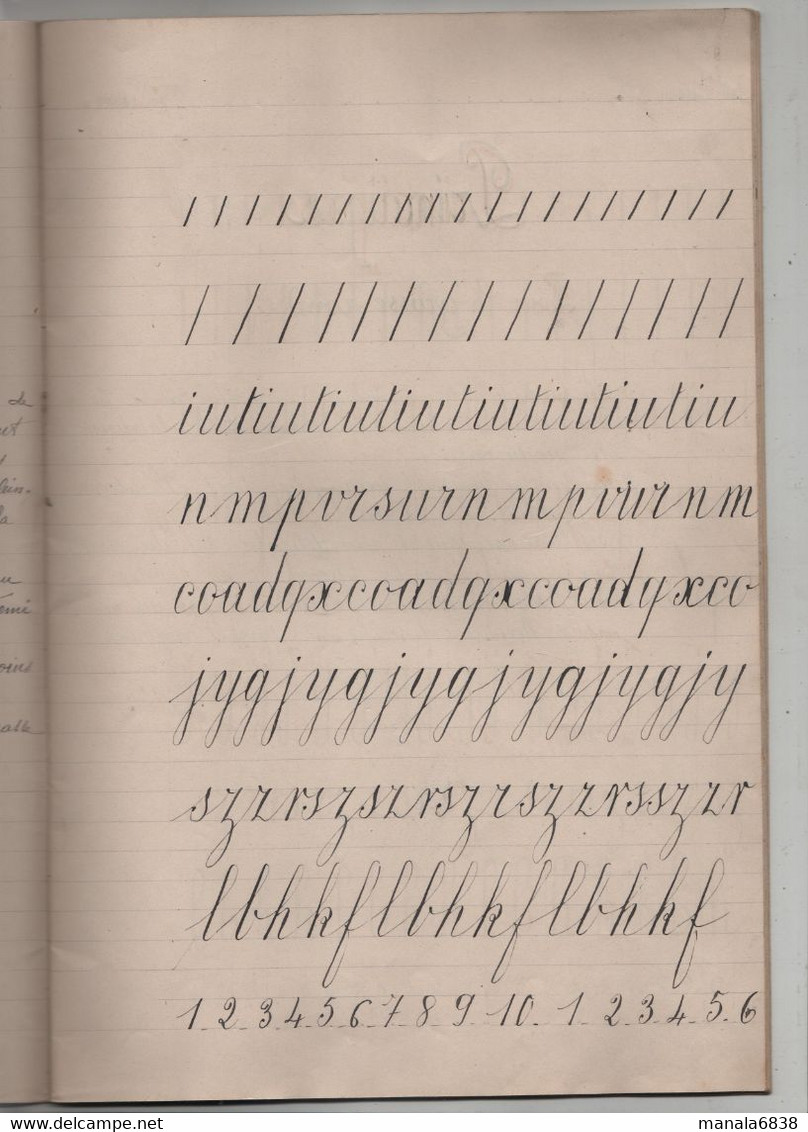 iutiutiutiutiutiutiutiu
nmpvrsurnmpvururnm
coadqxcoadqxcoadqxco
jygjygjygjygjygjy
szzrszszrszrszzrsszzr
lbhkflbhkflbhkf
1_2_3_4_5_6_7_8_9_10_1_2_3_4_5_6
de
la
oins
www.delcampe.net
manala6838